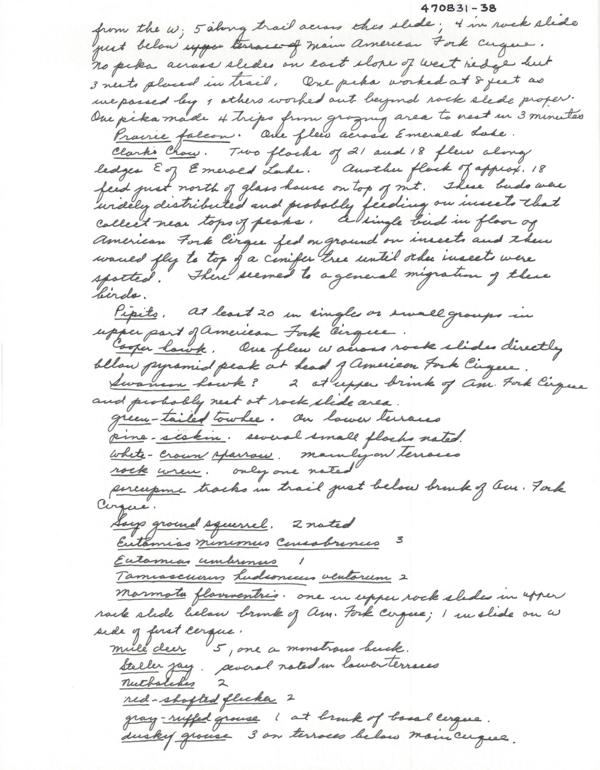 470831-38
from the W; 5 along trail across this slide; 4 in rock slide
just below upper terrace of main American Fork Cirque.
No pika across slides on east slope of west ridge but
3 nests placed in trail. One pika worked at 8 feet as
we passed by, others worked out beyond rock slide proper.
One pika made 4 trips from grazing area to nest in 3 minutes
Prairie falcon. One flew across Emerald Lake.
Clark's Crow. Two flocks of 21 and 18 flew along
ledges E of Emerald Lake. Another flock of approx. 18
feed just north of glass house on top of mt. These birds were
widely distributed and probably feeding on insects that
collect near tops of peaks. A single bird in floor of
American Fork Cirque fed on ground on insects and then
would fly to top of a conifer tree until other insects were
spotted. There seemed to a general migration of these
birds.
Pipits. At least 20 in singles or small groups in
upper part of American Fork Cirque.
Cooper hawk. One flew W across rock slides directly
below pyramid peak at head of American Fork Cirque.
Swanson hawk? 2 at upper brink of Am. Fork Cirque
and probably nest at rock slide area.
green-tailed towhee. On lower terraces
pine-siskin. several small flocks noted.
white-crown sparrow. mainly on terraces
rock wren. only one noted
porcupine tracks in trail just below brink of Am. Fork
Cirque.
Says ground squirrel. 2 noted
Eutamias minimus consobrinus 3
Eutamias umbrinus 1
Tamiasciurus hudsonicus ventorum 2
Marmota flaviventris. one in upper rock slides in upper
rock slide below brink of Am. Fork Cirque; 1 in slide on W
side of first cirque.
Mule deer 5, one a monstrous buck.
Steller jay. several noted in lower terraces
Nuthatches 2
red-shafted flicker 2
gray-ruffed grouse 1 at brink of basal cirque.
dusky grouse 3 on terraces below main cirque.